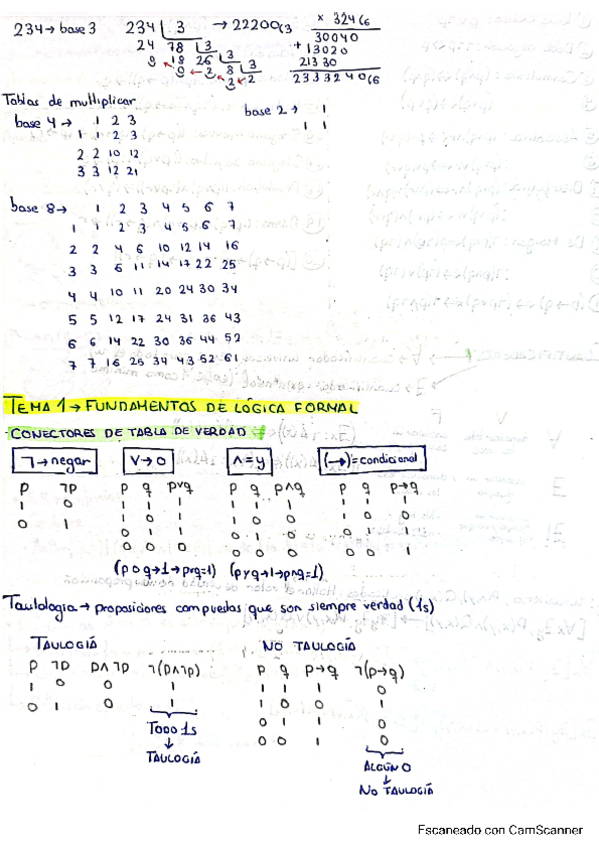 234→base 3   234 | 3   → 22200(3   × 324(6
24 78 | 3   30040
0 18 26 | 3   + 13020
0 2 8 | 3   21330
2 2   2333240(6
Tablas de multiplicar
base 4→ 1 2 3   base 2→ 1
1 1 2 3   1 1
2 2 10 12
3 3 12 21
base 8→ 1 2 3 4 5 6 7
1 1 2 3 4 5 6 7
2 2 4 6 10 12 14 16
3 3 6 11 14 17 22 25
4 4 10 11 20 24 30 34
5 5 12 17 24 31 36 43
6 6 14 22 30 36 44 52
7 7 16 25 34 43 52 61
TEMA 1→FUNDAMENTOS DE LÓGICA FORMAL
CONECTORES DE TABLA DE VERDAD
¬→negar   V→o   Λ=y   (→)=condicional
P ¬P   P q pvq   P q pΛq   P q p→q
1 0   1 1 1   1 1 1   1 1 1
0 1   1 0 1   1 0 0   1 0 0
0 1 1   0 1 0   0 1 1
0 0 0   0 0 0   0 0 1
(p o q→1→pvq=1)   (p y q→1→pΛq=1)
Tautología→proposiciones compuestas que son siempre verdad (1s)
TAULOGÍA   NO TAULOGÍA
P ¬P PΛ¬P ¬(PΛ¬P)   P q P→q ¬(p→q)
1 0 0 1   1 1 1 0
0 1 0 1   1 0 0 1
0 1 1 0
TODO 1s   0 0 1 0
↓
TAULOGÍA   ALGÚN 0
↓
NO TAULOGÍA
Escaneado con CamScanner